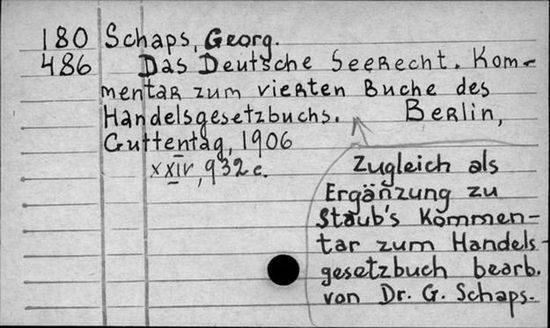 180 Schaps, Georg.
486 Das Deutsche Seerecht. Kom-
mentar zum vierten Buche des
Handelsgesetzbuchs. Berlin,
Guttentag, 1906
XXIV, 932 c.
Zugleich als
Ergänzung zu
Staub's Kommen-
tar zum Handels-
gesetzbuch bearb.
von Dr. G. Schaps.